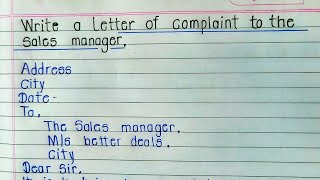 Write a letter of complaint to the
Sales manager.
Address
City
Date-
To,
The Sales manager.
M/s better deals.
City
Dear Sir,